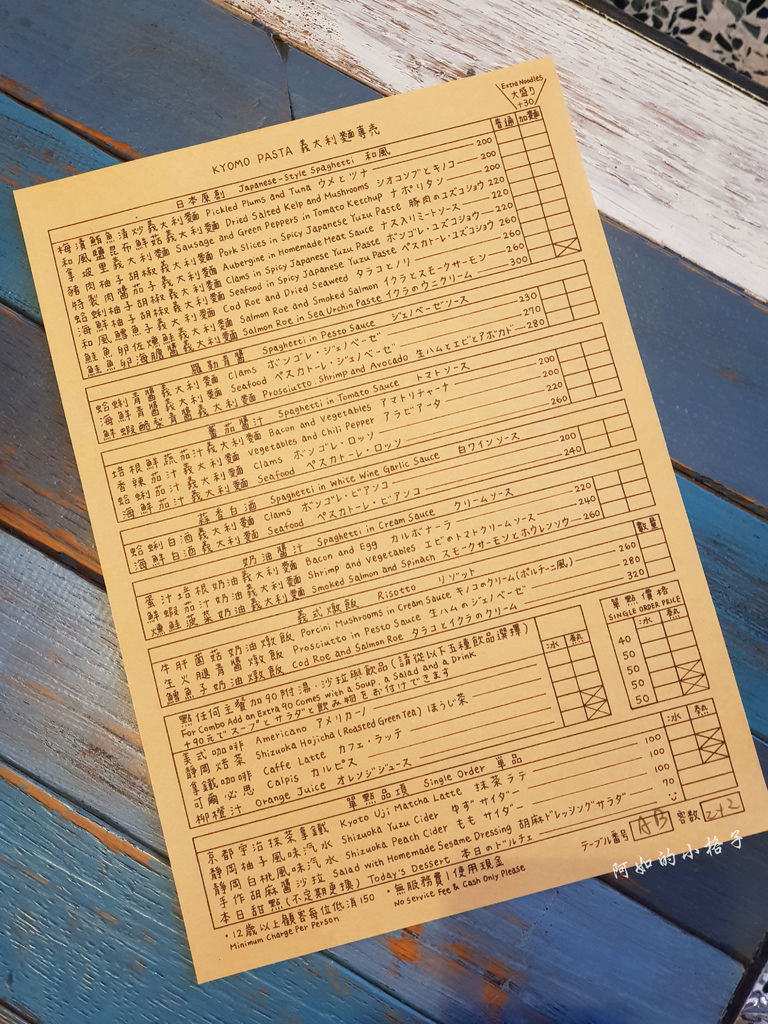 Extra Noodles
大盛り
+30
KYOMO PASTA 義大利麵專売
普通 加麵
日本原創 Japanese-Style Spaghetti 和風
梅漬鮪魚清炒義大利麵 Pickled Plums and Tuna ウメとツナ 200
和風鹽昆布鮮菇義大利麵 Dried Salted Kelp and Mushrooms シオコンブとキノコ 200
拿坡里義大利麵 Sausage and Green Peppers in Tomato Ketchup ナポリタン 200
豬肉柚子胡椒義大利麵 Pork Slices in Spicy Japanese Yuzu Paste 豚肉のユズコショウ 220
特製肉醬茄子義大利麵 Aubergine in Homemade Meat Sauce ナス入りミートソース 220
蛤蜊柚子胡椒義大利麵 Clams in Spicy Japanese Yuzu Paste ボンゴレ・ユズコショウ 220
海鮮柚子胡椒義大利麵 Seafood in Spicy Japanese Yuzu Paste ペスカトーレ・ユズコショウ 260
和風鱈魚子義大利麵 Cod Roe and Dried Seaweed タラコとノリ 260
鮭魚卵佐燻鮭義大利麵 Salmon Roe and Smoked Salmon イクラとスモークサーモン 260
鮭魚卵海膽醬義大利麵 Salmon Roe in Sea Urchin Paste イクラのウニクリーム 300
羅勒青醬 Spaghetti in Pesto Sauce ジェノベーゼソース
蛤蜊青醬義大利麵 Clams ボンゴレ・ジェノベーゼ 230
海鮮青醬義大利麵 Seafood ペスカトーレ・ジェノベーゼ 270
鮮蝦酪梨青醬義大利麵 Prosciutto, Shrimp and Avocado 生ハムとエビとアボカド 280
蕃茄醬汁 Spaghetti in Tomato Sauce トマトソース
培根鮮蔬茄汁義大利麵 Bacon and Vegetables アマトリチャーナ 200
香辣茄汁義大利麵 Vegetables and Chili Pepper アラビアータ 200
蛤蜊茄汁義大利麵 Clams ボンゴレ・ロッソ 220
海鮮茄汁義大利麵 Seafood ペスカトーレ・ロッソ 260
蒜香白酒 Spaghetti in White Wine Garlic Sauce 白ワインソース
蛤蜊白酒義大利麵 Clams ボンゴレ・ビアンコ 200
海鮮白酒義大利麵 Seafood ペスカトーレ・ビアンコ 240
奶油醬汁 Spaghetti in Cream Sauce クリームソース
蛋汁培根奶油義大利麵 Bacon and Egg カルボナーラ 220
鮮蝦茄汁奶油義大利麵 Shrimp and Vegetables エビのトマトクリームソース 240
燻鮭菠菜奶油義大利麵 Smoked Salmon and Spinach スモークサーモンとホウレンソウ 260
義式燉飯 Risotto リゾット 數量
牛肝菌菇奶油燉飯 Porcini Mushrooms in Cream Sauce キノコのクリーム(ポルチーニ風) 260
生火腿青醬燉飯 Prosciutto in Pesto Sauce 生ハムのジェノベーゼ 280
鱈魚子奶油燉飯 Cod Roe and Salmon Roe タラコとイクラのクリーム 320
點任何主餐加90附湯・沙拉與飲品(請從以下五種飲品選擇)
For Combo Add an Extra 90 Comes with a Soup, a Salad and a Drink
+90元でスープとサラダと飲み物をお付けできます
冰 熱
單點價格
SINGLE ORDER PRICE
冰 熱
美式咖啡 Americano アメリカーノ 40
靜岡焙茶 Shizuoka Hojicha (Roasted Green Tea) ほうじ茶 50
拿鐵咖啡 Caffe Latte カフェ・ラッテ 50
可爾必思 Calpis カルピス 50
柳橙汁 Orange Juice オレンジジュース 50
單點品項 Single Order 單品 冰 熱
京都宇治抹茶拿鐵 Kyoto Uji Matcha Latte 抹茶ラテ 100
靜岡柚子風味汽水 Shizuoka Yuzu Cider ゆずサイダー 100
靜岡白桃風味汽水 Shizuoka Peach Cider ももサイダー 100
手作胡麻醬沙拉 Salad with Homemade Sesame Dressing 胡麻ドレッシングサラダ 70
本日甜點(不定期更換) Today's Dessert 本日のドルチェ
・12歲以上顧客每位低消150 ・無服務費/使用現金
Minimum Charge Per Person No Service Fee & Cash Only Please
テーブル番号 AB 客数 2+2
阿如的小格子